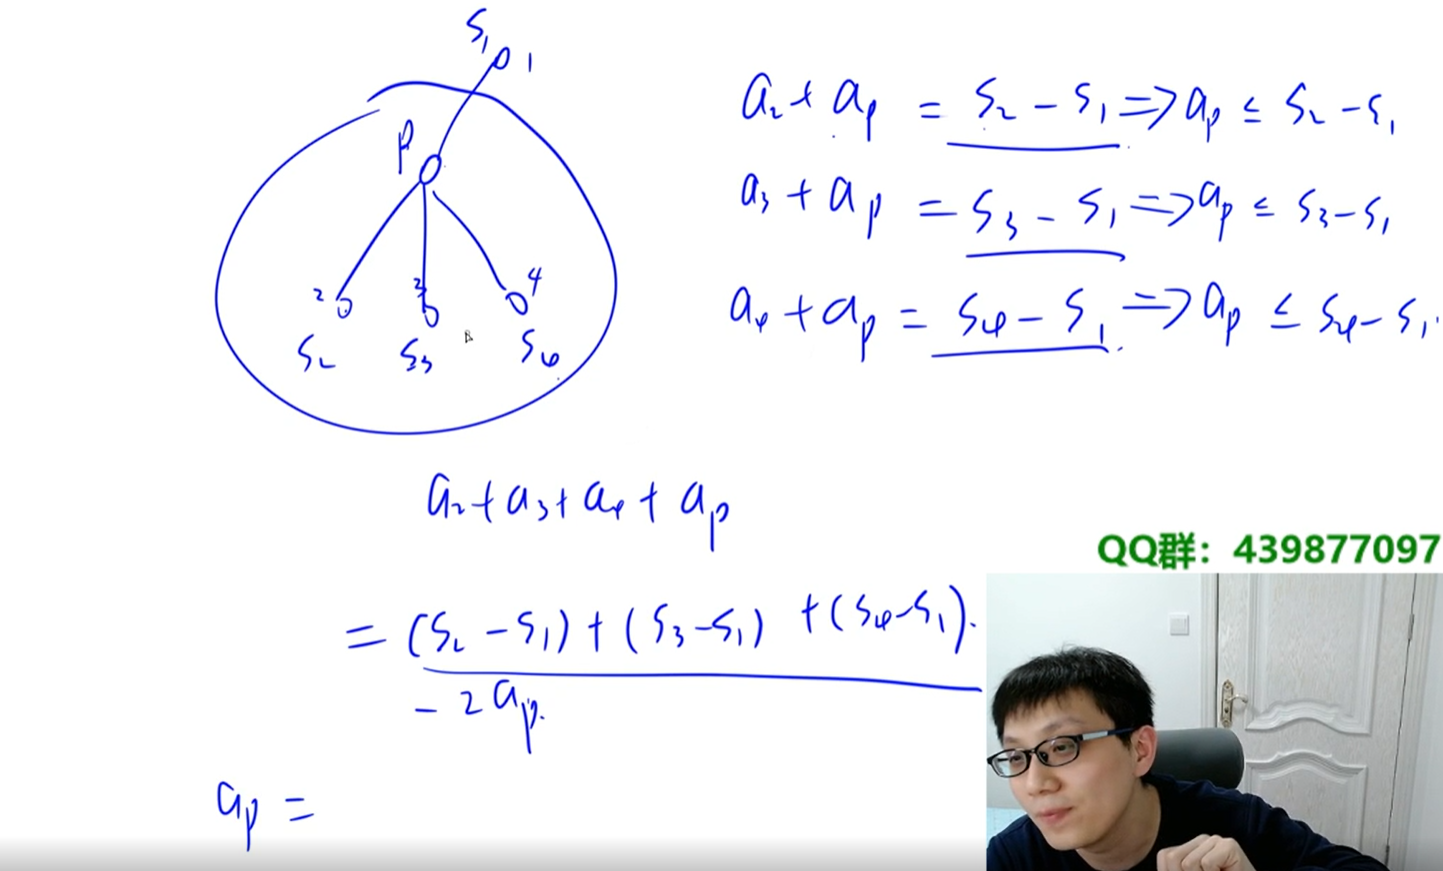 S₁ 1
P
2 3 4
S₂ S₃ S₄
a₂ + aₚ = S₂ - S₁ ⇒ aₚ ≤ S₂ - S₁
a₃ + aₚ = S₃ - S₁ ⇒ aₚ ≤ S₃ - S₁
a₄ + aₚ = S₄ - S₁ ⇒ aₚ ≤ S₄ - S₁.
a₂ + a₃ + a₄ + aₚ
= (S₂ - S₁) + (S₃ - S₁) + (S₄ - S₁).
- 2aₚ.
aₚ =
QQ群：439877097